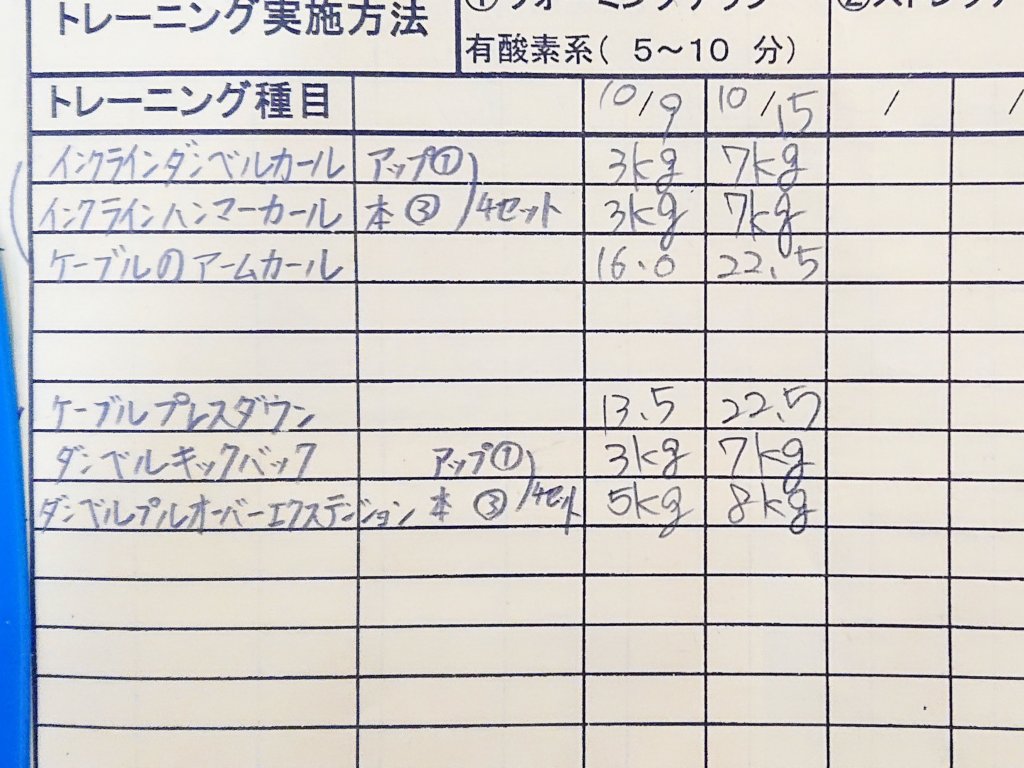 トレーニング実施方法
有酸素系( 5～10 分)
トレーニング種目 10/9 10/15 / /
インクラインダンベルカール アップ① 3kg 7kg
インクラインハンマーカール 本 ③ 4セット 3kg 7kg
ケーブルのアームカール 16.0 22.5
ケーブルプレスダウン 13.5 22.5
ダンベルキックバック アップ① 3kg 7kg
ダンベルプルオーバーエクステンション 本 ③ 4セット 5kg 8kg